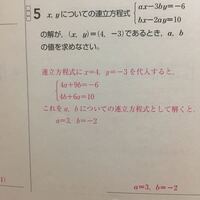 5 x, yについての連立方程式 { ax－3by＝－6
bx－2ay＝10
の解が, (x, y)＝(4, －3)であるとき, a, b
の値を求めなさい。
連立方程式にx＝4, y＝－3を代入すると,
{ 4a＋9b＝－6
4b＋6a＝10
これをa, bについての連立方程式として解くと,
a＝3, b＝－2
a＝3, b＝－2